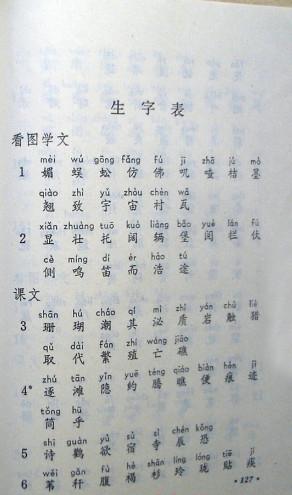 生字表
看图学文
mèi wú gōng fǎng fú jī zhā jú mò
1 媚 蜈 蚣 仿 佛 叽 喳 桔 墨
qiào zhì yǔ zhòu cūn wǎ
翘 致 宇 宙 村 瓦
xiǎn zhuàng tuō kuò liàng bǎo yuè lán fú
2 显 壮 托 阔 辆 堡 阅 栏 伏
cè míng dí ér hào tú
侧 鸣 笛 而 浩 途
课文
shān hú cháo qí mì zhì yán chù liè
3 珊 瑚 潮 其 泌 质 岩 触 猎
qǔ dài fán zhí wáng jiāo
取 代 繁 殖 亡 礁
zhú tān yǐn yuē téng qiáo biàn hén jì
4* 逐 滩 隐 约 腾 瞧 便 痕 迹
tǒng hū
筒 乎
shī guàn yù sù sì chén kǒng
5 诗 鹳 欲 宿 寺 辰 恐
wěi gǎn fù hè shān líng lóng tiē
6 苇 秆 腹 褐 杉 玲 珑 贴
·127·